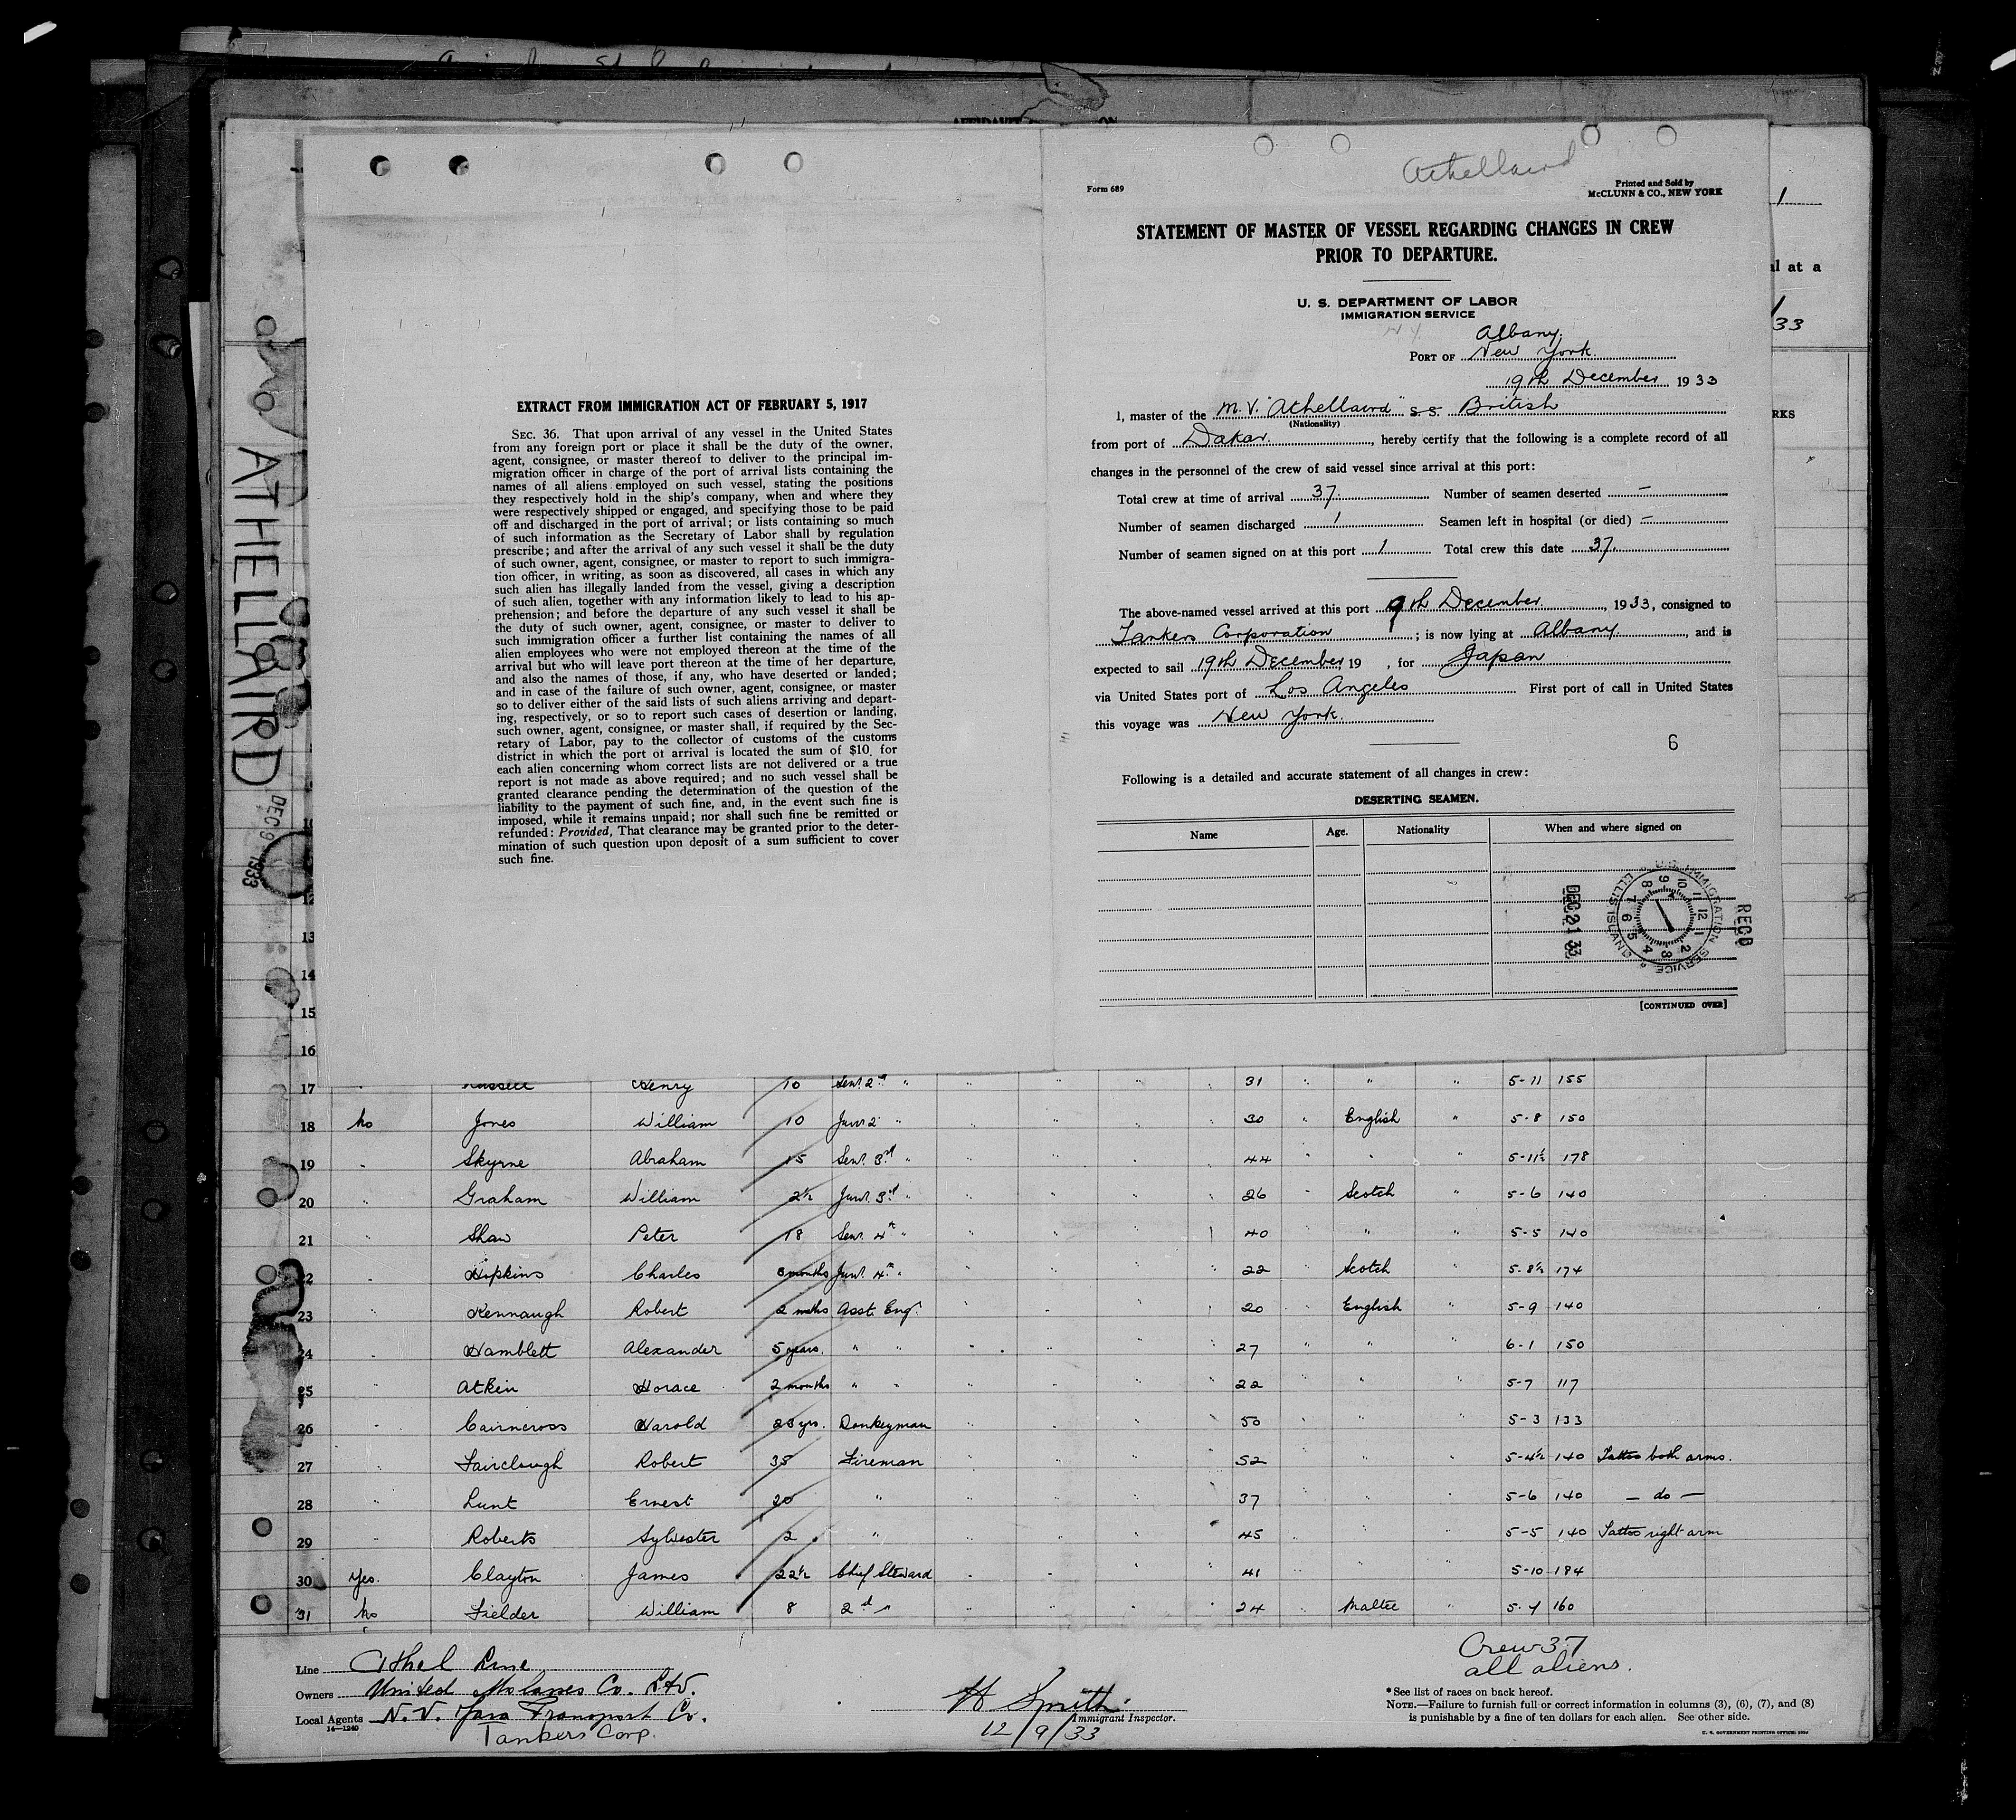 ATHELLAIRD
DEC 9 1933
EXTRACT FROM IMMIGRATION ACT OF FEBRUARY 5, 1917
SEC. 36. That upon arrival of any vessel in the United States
from any foreign port or place it shall be the duty of the owner,
agent, consignee, or master thereof to deliver to the principal im-
migration officer in charge of the port of arrival lists containing the
names of all aliens employed on such vessel, stating the positions
they respectively hold in the ship's company, when and where they
were respectively shipped or engaged, and specifying those to be paid
off and discharged in the port of arrival; or lists containing so much
of such information as the Secretary of Labor shall by regulation
prescribe; and after the arrival of any such vessel it shall be the duty
of such owner, agent, consignee, or master to report to such immigra-
tion officer, in writing, as soon as discovered, all cases in which any
such alien has illegally landed from the vessel, giving a description
of such alien, together with any information likely to lead to his ap-
prehension; and before the departure of any such vessel it shall be
the duty of such owner, agent, consignee, or master to deliver to
such immigration officer a further list containing the names of all
alien employees who were not employed thereon at the time of the
arrival but who will leave port thereon at the time of her departure,
and also the names of those, if any, who have deserted or landed;
and in case of the failure of such owner, agent, consignee, or master
so to deliver either of the said lists of such aliens arriving and depart-
ing, respectively, or so to report such cases of desertion or landing,
such owner, agent, consignee, or master shall, if required by the Sec-
retary of Labor, pay to the collector of customs of the customs
district in which the port of arrival is located the sum of $10 for
each alien concerning whom correct lists are not delivered or a true
report is not made as above required; and no such vessel shall be
granted clearance pending the determination of the question of the
liability to the payment of such fine, and, in the event such fine is
imposed, while it remains unpaid; nor shall such fine be remitted or
refunded: Provided, That clearance may be granted prior to the deter-
mination of such question upon deposit of a sum sufficient to cover
such fine.
Athellaird
Form 689
Printed and Sold by
McCLUNN & CO., NEW YORK
STATEMENT OF MASTER OF VESSEL REGARDING CHANGES IN CREW
PRIOR TO DEPARTURE.
U. S. DEPARTMENT OF LABOR
IMMIGRATION SERVICE
Albany.
PORT OF New York.
19th December, 1933
I, master of the M.V. "Athellaird" S.S. British
(Nationality)
from port of Dakar., hereby certify that the following is a complete record of all
changes in the personnel of the crew of said vessel since arrival at this port:
Total crew at time of arrival 37. Number of seamen deserted —
Number of seamen discharged 1 Seamen left in hospital (or died) —
Number of seamen signed on at this port 1 Total crew this date 37.
The above-named vessel arrived at this port 9th December., 1933, consigned to
Tankers Corporation; is now lying at Albany., and is
expected to sail 19th December, 19 , for Japan
via United States port of Los Angeles First port of call in United States
this voyage was New York.
6
Following is a detailed and accurate statement of all changes in crew:
DESERTING SEAMEN.
Name Age. Nationality When and where signed on
RECD
U.S. IMMIGRATION SERVICE
ELLIS ISLAND
DEC 21 33
[CONTINUED OVER]
1
al at a
33
RKS
13
14
15
16
17 Russell Henry 10 Senr. 2nd " 31 " " 5-11 155
18 No Jones William 10 Junr 2 " 30 " English " 5-8 150
19 " Skyrne Abraham 15 Senr. 3rd " 44 " " " 5-11½ 178
20 " Graham William 2½ Junr. 3rd " 26 " Scotch " 5-6 140
21 " Shaw Peter 18 Senr. 4th " 40 " " 5-5 140
22 " Hopkins Charles 3 months Junr. 4th " 22 " Scotch " 5-8½ 174
23 " Kennaugh Robert 2 mths Asst. Eng. 20 " English " 5-9 140
24 " Hamblett Alexander 5 years. " " 27 " " " 6-1 150
25 " Atkin Horace 2 months " " 22 " " 5-7 117
26 " Cairncross Harold 23 yrs. Donkeyman 50 " " 5-3 133
27 " Fairclough Robert 35 Fireman 52 " " 5-4½ 140 Tattoo both arms.
28 " Lunt Ernest 20 " 37 " " 5-6 140 — do —
29 " Roberts Sylvester 2 " 45 " " 5-5 140 Tattoo right arm
30 Yes. Clayton James 22½ Chief Steward 41 " " 5-10 184
31 No Fielder William 8 2d " 24 " Maltee " 5-4 160
Line Athel Line
Owners United Molasses Co. Ltd.
Local Agents N.V. Java Transport Co.
14—1240
Tankers Corp.
H Smith
Immigrant Inspector.
12/9/33
Crew 37
all aliens.
*See list of races on back hereof.
NOTE.—Failure to furnish full or correct information in columns (3), (6), (7), and (8)
is punishable by a fine of ten dollars for each alien. See other side.
U. S. GOVERNMENT PRINTING OFFICE: